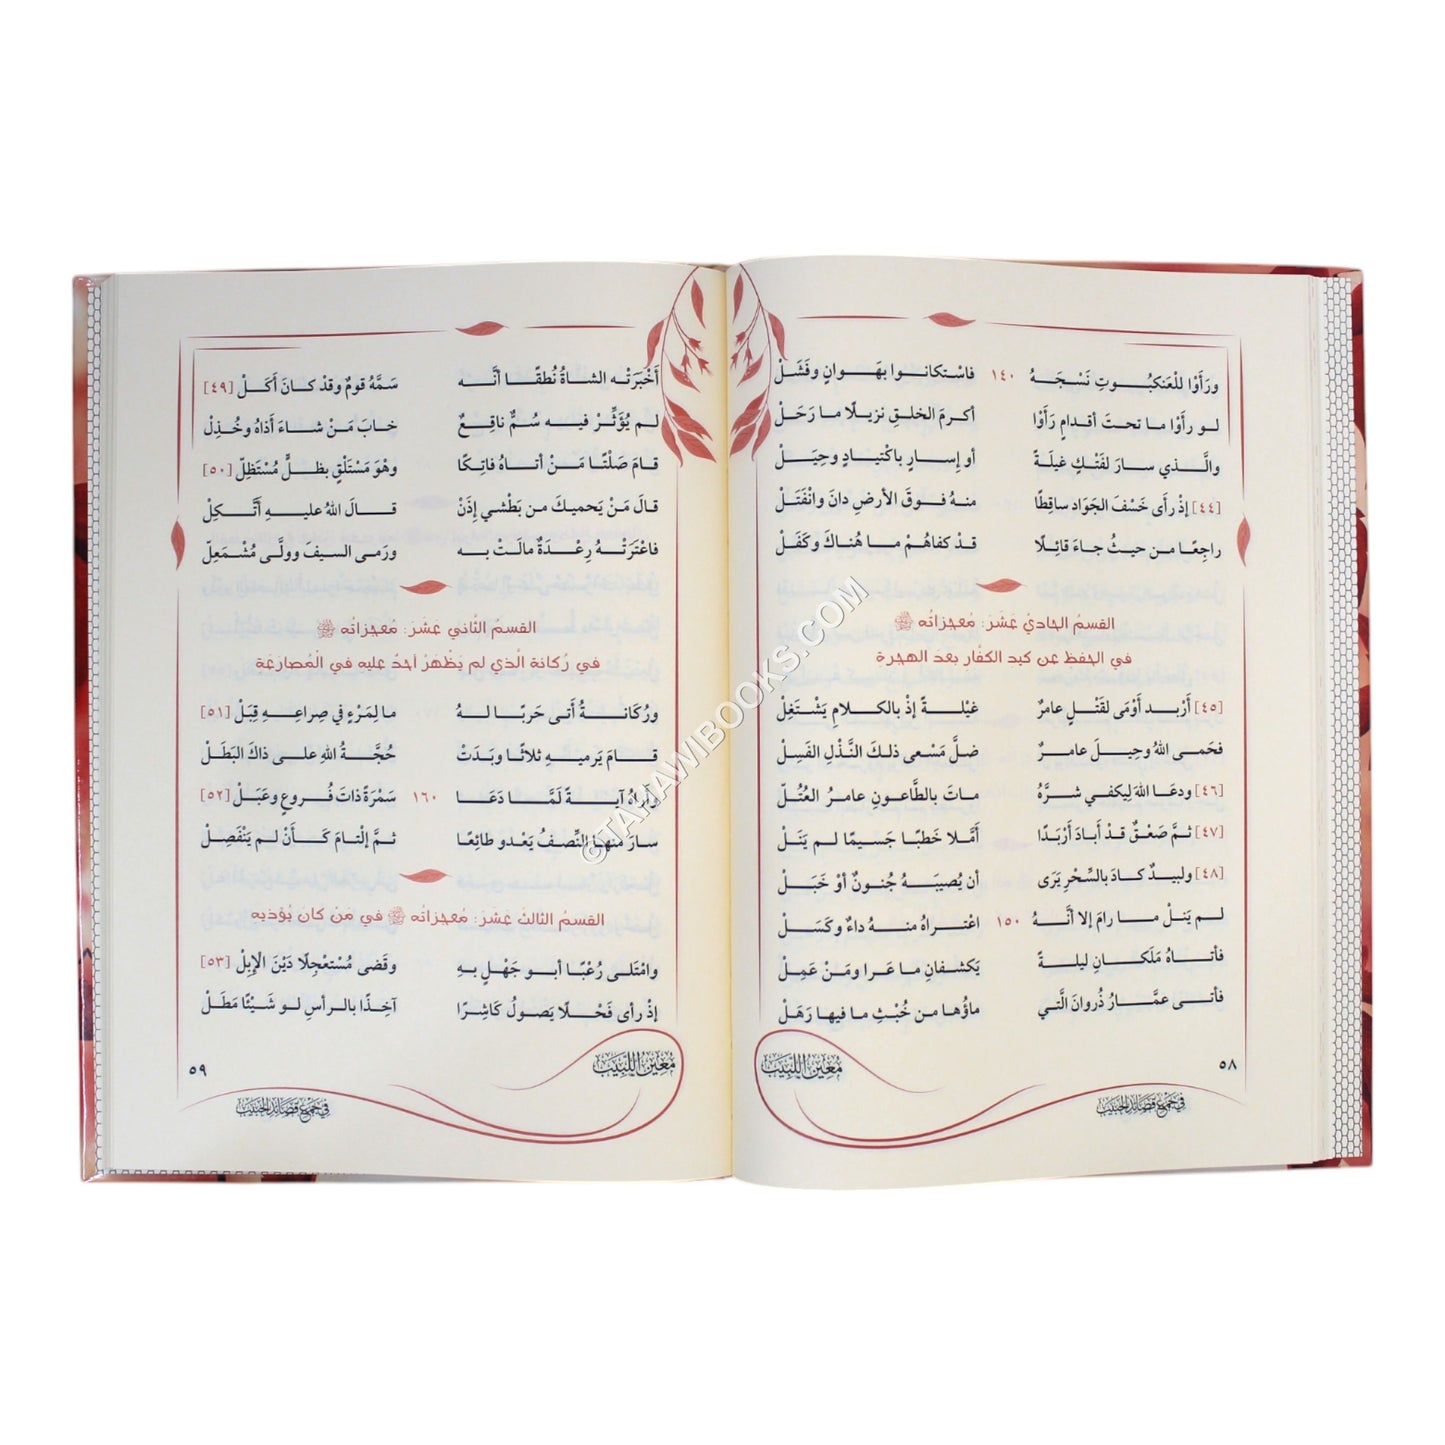 ورَأَوْا للْعَنكبُـــوتِ نَسْـجَـــهُ ١٤٠ فاسْتكانــوا بهَــوانٍ وفَشَلْ
لــو رأَوْا مـا تحتَ أقدامٍ رَأَوْا أكرمَ الخلقِ نزيـلًا مــا رَحَـلْ
والَّــذي سـارَ لفَتْـكٍ غيلَـةً أو إسـارٍ باكْتيـادٍ وحِيَـلْ
[٤٤] إذْ رأى خَسْفَ الجَوَاد ساقِطًا منهُ فــوقَ الأرضِ دانَ وانْفَتَـلْ
راجِعًـا مـن حيثُ جاءَ قائِـلًا قـدْ كفاهُـمْ مــا هُناكَ وكَفَـلْ
القسمُ الحاديْ عَشَرَ: مُعجزاتُه ﷺ
في الحفظِ عن كيدِ الكفارِ بعدَ الهجرةِ
[٤٥] أَرْبـد أوْمَى لقَتْـلٍ عامرٌ غيْلـةً إذْ بالكـلامِ يَشْتغِلْ
فحَمـى اللهُ وحِيـلَ عامـرٌ ضلَّ مَسْعى ذلـكَ النَّـذْلِ الفَسِلْ
[٤٦] ودعَـا اللهَ لِيكفـي شـرَّهُ ماتَ بالطَّاعونِ عامرُ العُتُلّ
[٤٧] ثمَّ صَعْقٌ قـدْ أبـادَ أَرْبَـدًا أَمَّـلا خَطبًـا جَسيمًا لـم يَنَلْ
[٤٨] ولَبيدٌ كـادَ بالسِّحْرِ يَرَى أن يُصيبَـهُ جُنـونٌ أوْ خَبَـلْ
لـم يَنلْ مـا رامَ إلا أنَّـهُ ١٥٠ اعْتـراهُ منـهُ داءٌ وكَسَـلْ
فأتـاهُ مَلَكـانِ ليلـةً يَكشفانِ ما عَـرا ومَنْ عَمِـلْ
فأتـى عمَّـارُ ذَروانَ الَّتي ماؤُهـا مـن خُبْثِ ما فيهـا رَهَلْ
مُعِينُ اللَّبِيبِ
٥٨
في جَمْعِ قَصَائِدِ الحَبِيبِ
أَخْبَرَتْـه الشـاةُ نُطقًـا أنَّـه سَمَّهُ قومٌ وقدْ كـانَ أَكَـلْ [٤٩]
لـم يُؤَثِّـرْ فيـه سُمٌّ ناقِـعٌ خابَ مَنْ شـاءَ أذاهُ وخُذِلْ
قـامَ صَلْتًـا مَـنْ أتـاهُ فاتِكًا وهْوَ مَسْتَلْقٍ بظلٍّ مُسْتَظِلّ [٥٠]
قالَ مَنْ يَحميكَ من بَطْشي إذَنْ قـالَ اللهُ عليـهِ أتَّـكِلْ
فاعْتَرَتْـهُ رِعْـدَةٌ مالَتْ بـه ورَمـى السيفَ وولَّـى مُشْمَعِلّ
القسمُ الثاني عَشَرَ: مُعجزاتُه ﷺ
في رُكانةِ الَّذي لم يَظْهَرْ أحدٌ عليه في الْمُصارَعَةِ
ورُكَانَـةُ أتـى حَربًـا لـهُ ما لِمَرْءٍ في صِراعِـهِ قِبَلْ [٥١]
قـامَ يَرميـهِ ثلاثًـا وبَـدَتْ حُجَّـةُ اللهِ علـى ذاكَ البَطَلْ
وأراهُ آيـةً لَمَّـا دَعَـا ١٦٠ سَمْرَةً ذاتَ فُـروعٍ وعَبَلْ [٥٢]
سـارَ منهـا النِّصـفُ يَعْدو طائِعًا ثـمَّ إلْتـامَ كـأَنْ لـم يَنْفَصِلْ
القسمُ الثالثَ عَشَرَ: مُعجزاتُه ﷺ في مَنْ كانَ يُؤذيهِ
وامْتَلـى رُعْبًـا أبـو جَهْلٍ بـهِ وقَضـى مُسْتَعْجِلًا دَيْنَ الْإِبِلْ [٥٣]
إذْ رأى فَحْـلًا يَصـولُ كَاشِـرًا آخِـذًا بالـرأسِ لـو شَيْئًا مَطَلْ
مُعِينُ اللَّبِيبِ
٥٩
في جَمْعِ قَصَائِدِ الحَبِيبِ
©TAHAWIBOOKS.COM